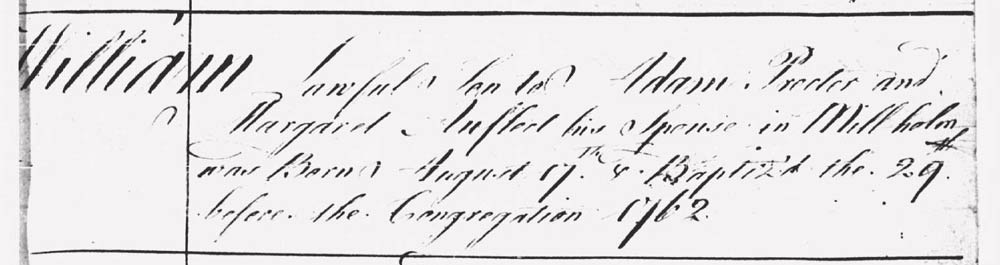 William Lawful Son to Adam Procter and
Margaret his Spouse in Millholm
was Born August 17th & Baptiz'd the 29th
before the Congregation 1762